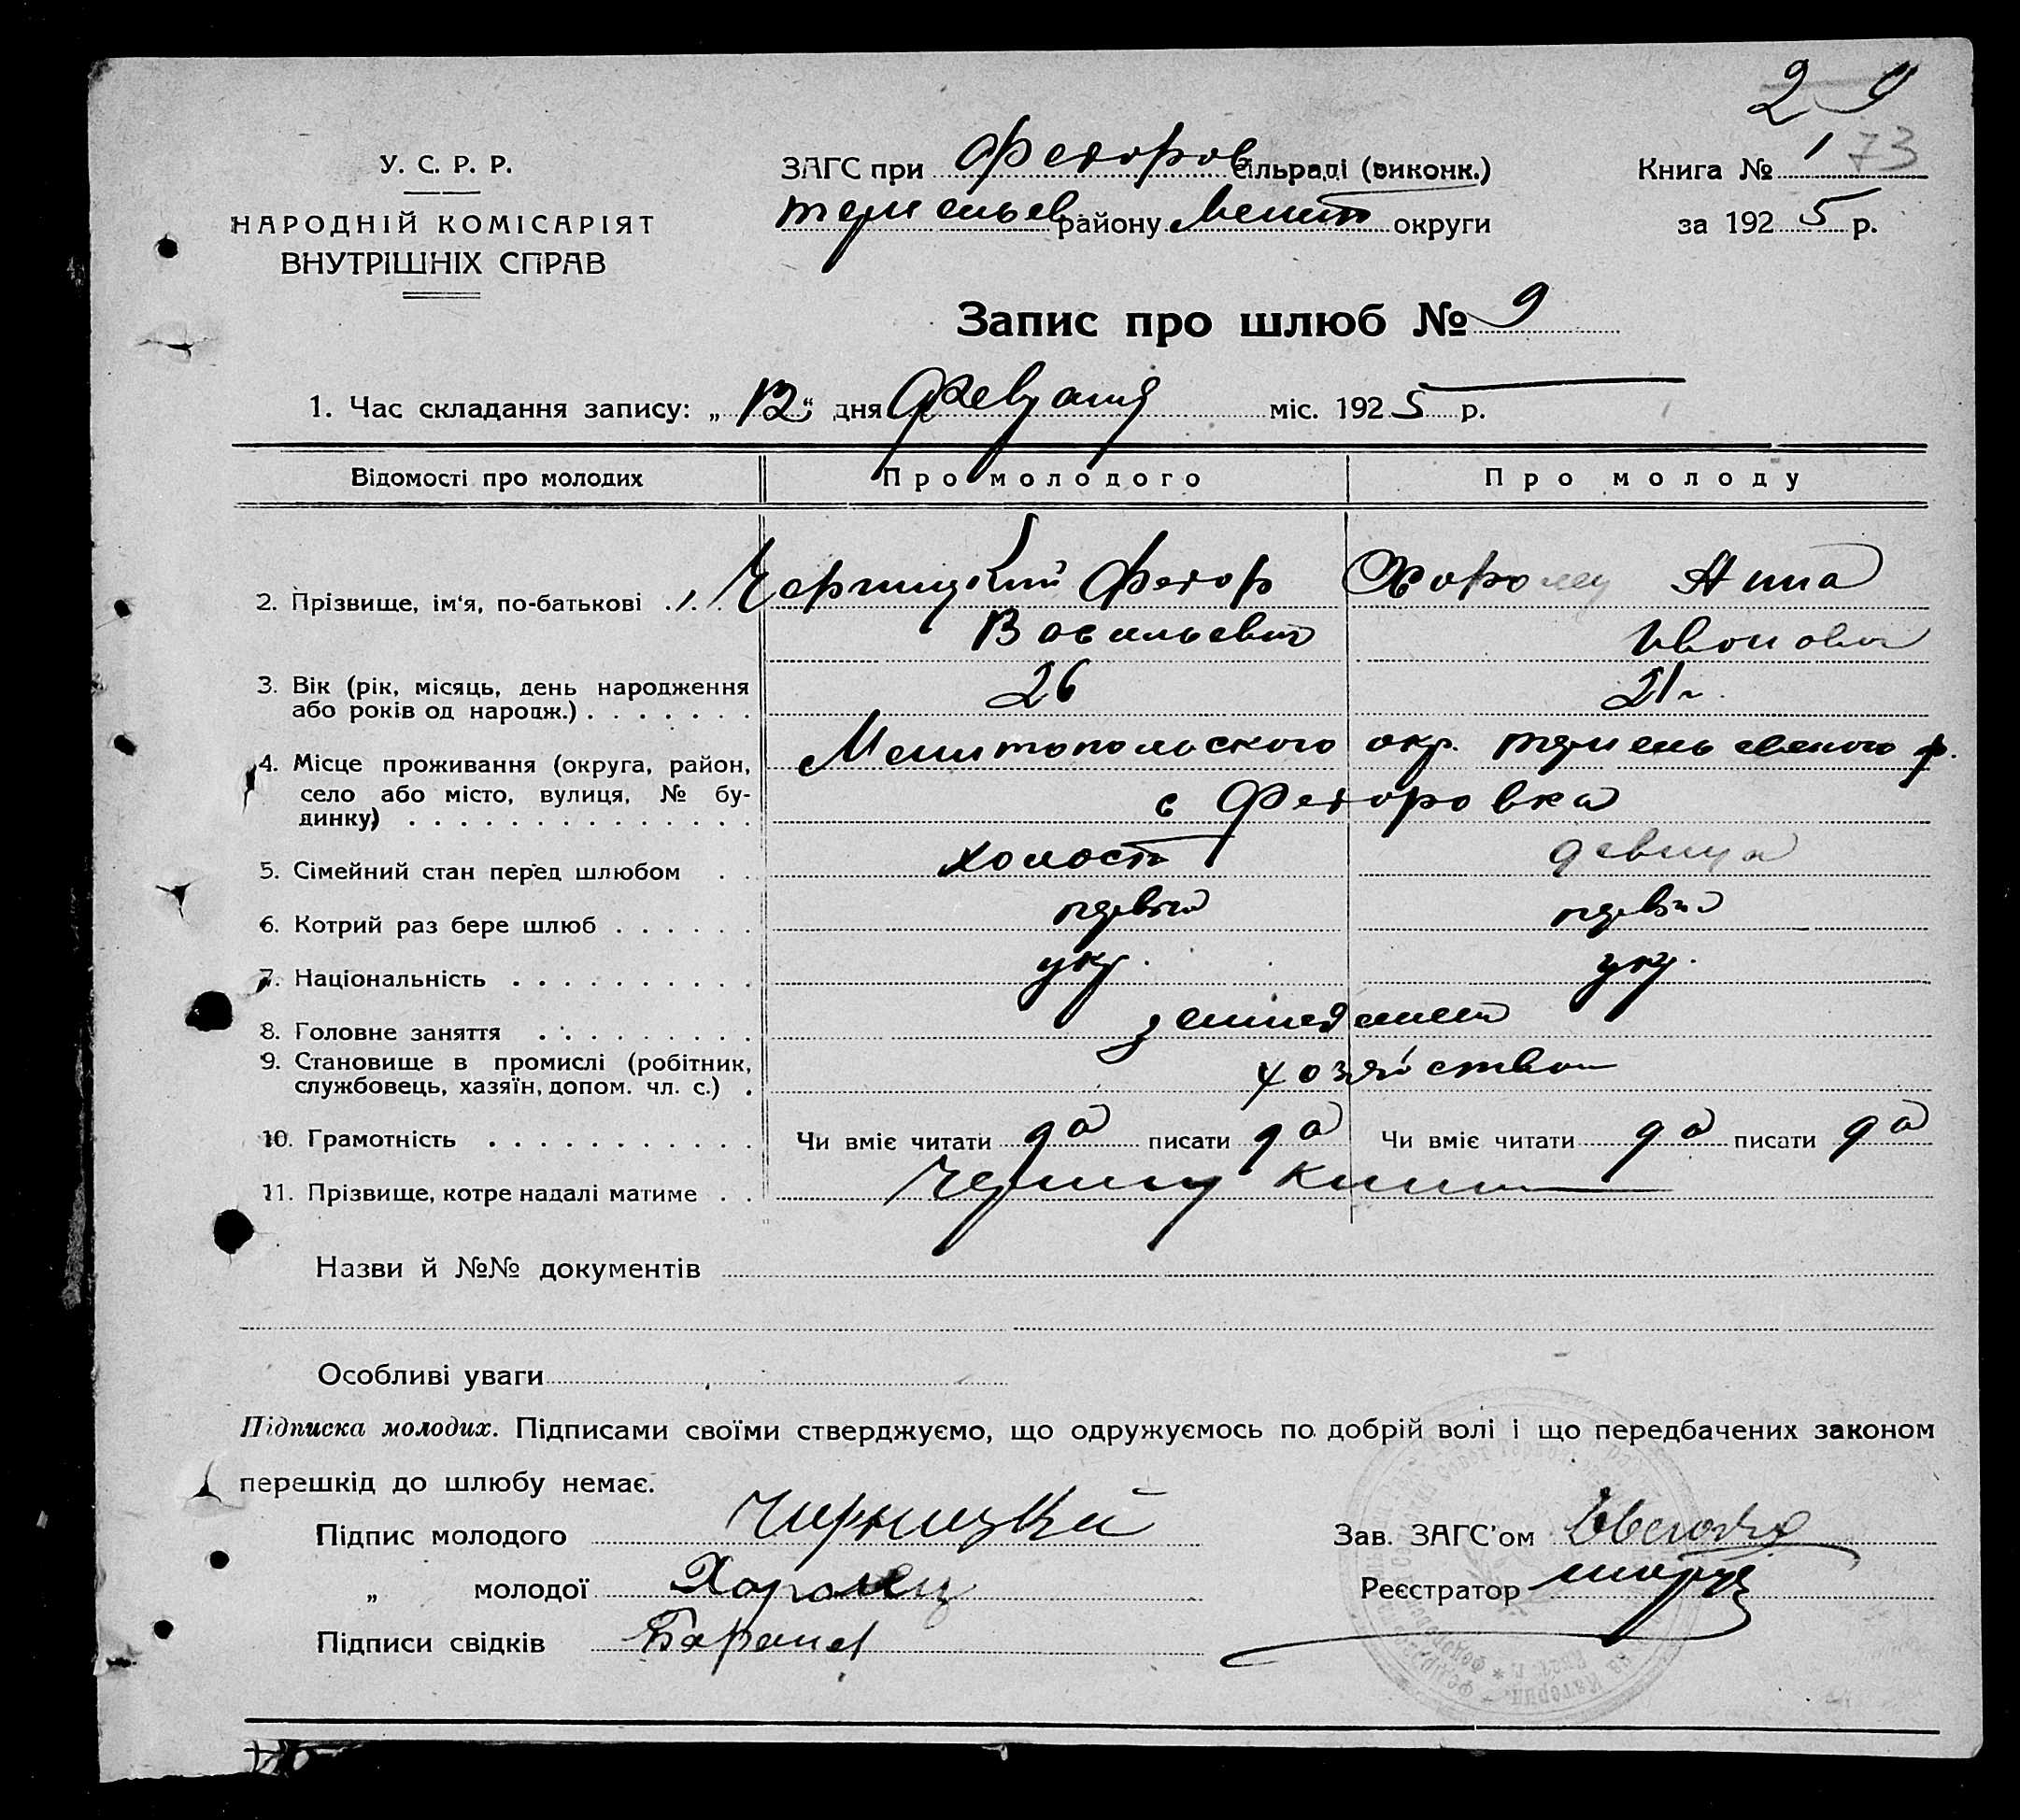 2 9
73
У. С. Р. Р.
НАРОДНІЙ КОМІСАРІЯТ
ВНУТРІШНІХ СПРАВ
ЗАГС при Федоров сільраді (виконк.)
району Мелит округи
Книга № 1
за 1925 р.
Запис про шлюб № 9
1. Час складання запису: „12“ дня Февраля міс. 1925 р.
Відомості про молодих Про молодого Про молоду
2. Прізвище, ім‘я, по-батькові Черницкий Федор Хоролец Анна
Васильевич Ивановна
3. Вік (рік, місяць, день народження
або років од народж.) 26 21 г.
Мелитопольского окр. р.
4. Місце проживання (округа, район,
село або місто, вулиця, № бу-
динку) с Федоровка
5. Сімейний стан перед шлюбом холост девица
6. Котрий раз бере шлюб первый первый
7. Національність укр. укр.
8. Головне заняття земледелием
9. Становище в промислі (робітник,
службовець, хазяїн, допом. чл. с.)
10. Грамотність Чи вміє читати да писати да Чи вміє читати да писати да
11. Прізвище, котре надалі матиме
Назви й №№ документів
Особливі уваги
Підписка молодих. Підписами своїми стверджуємо, що одружуємось по добрій волі і що передбачених законом
перешкід до шлюбу немає.
Підпис молодого Чирницкий
„ молодої Хоролец
Підписи свідків
Зав. ЗАГС'ом
Реєстратор